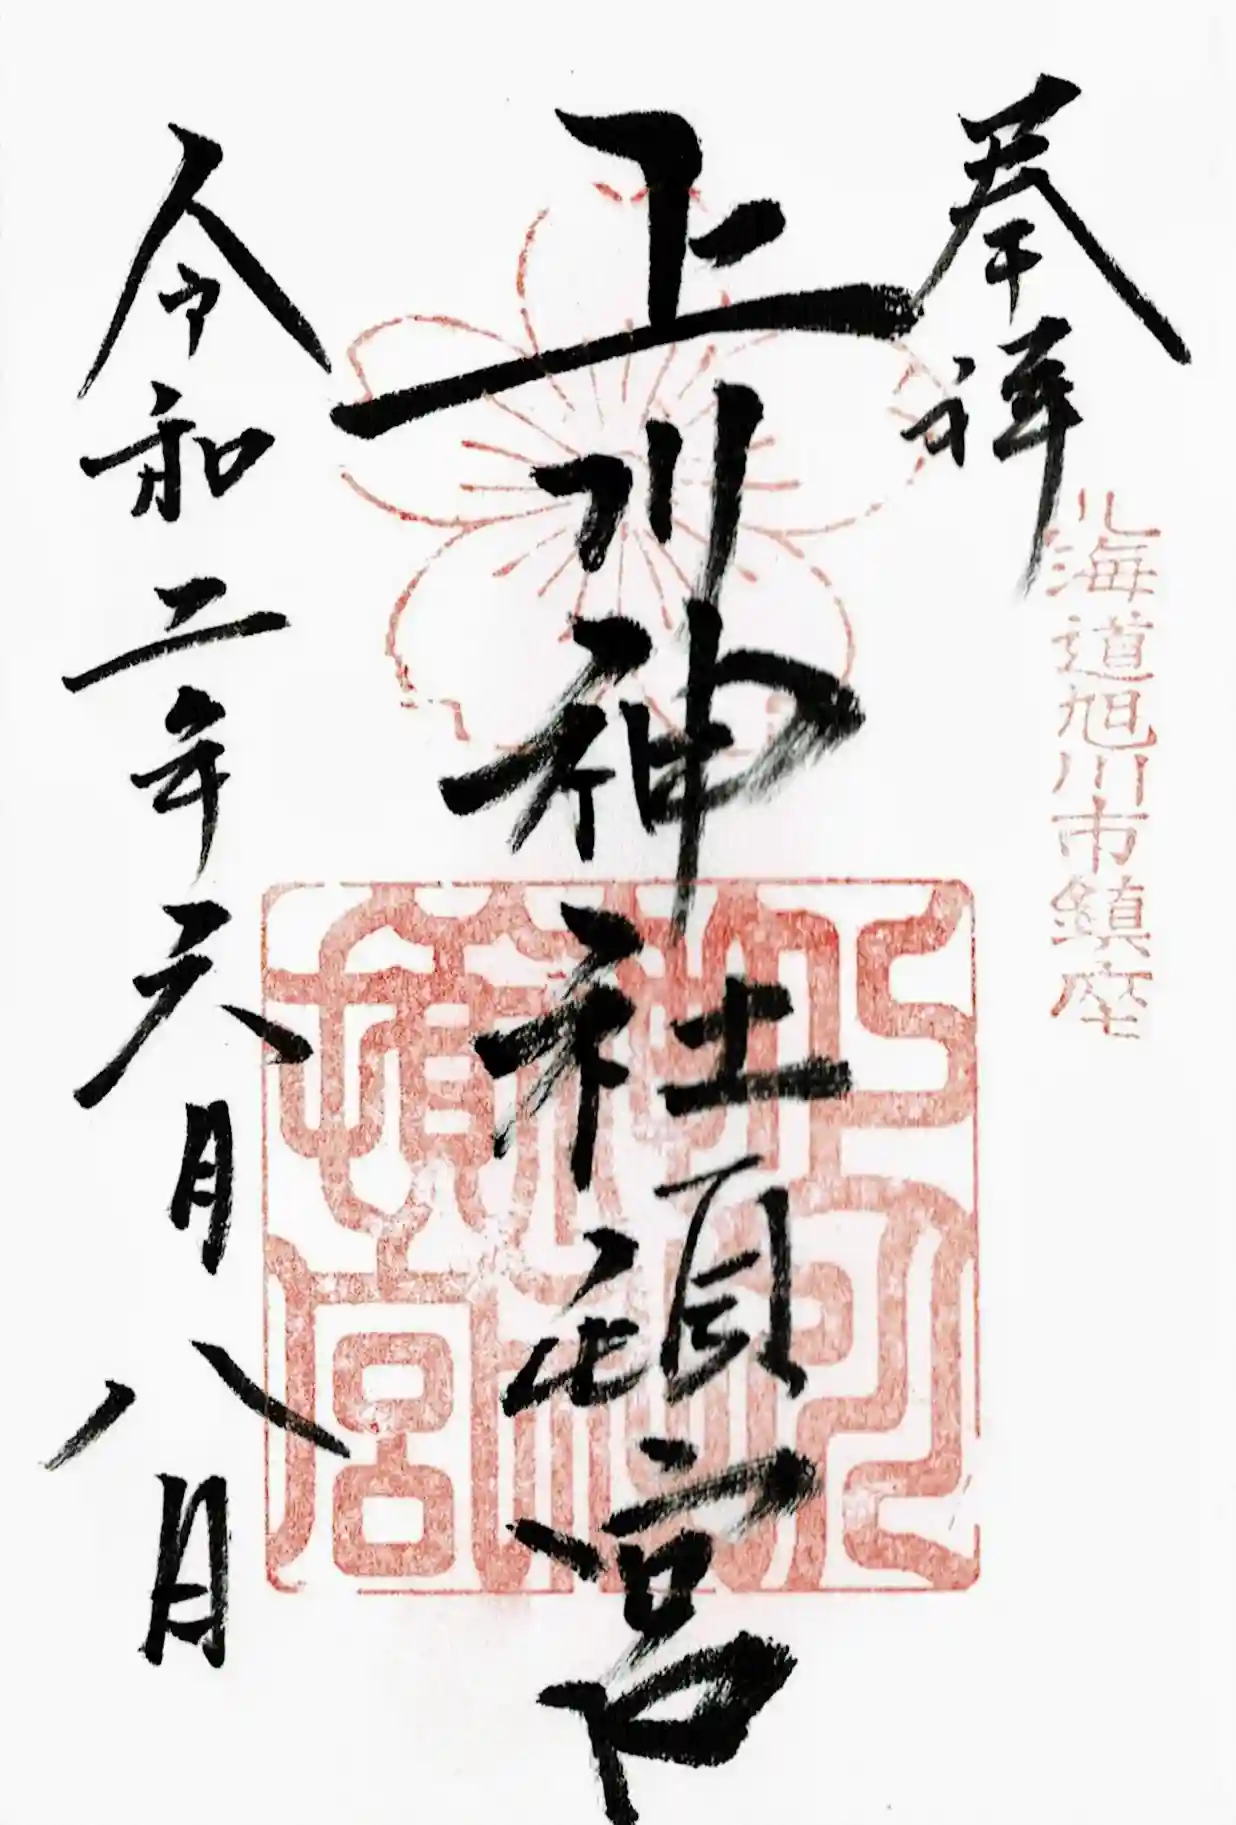 奉拝
北海道旭川市鎮座
上川神社頓宮
令和二年六月八日